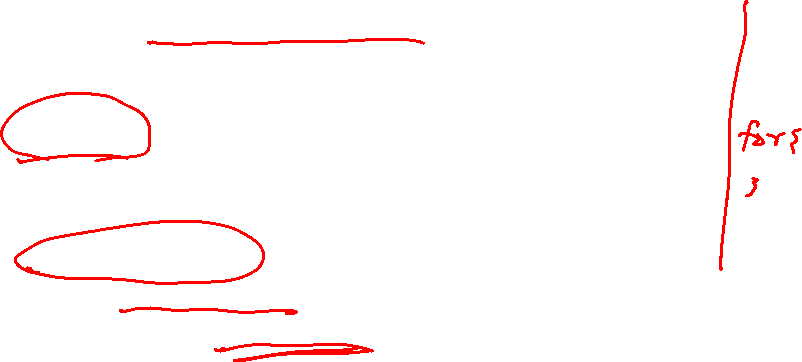 for{
}